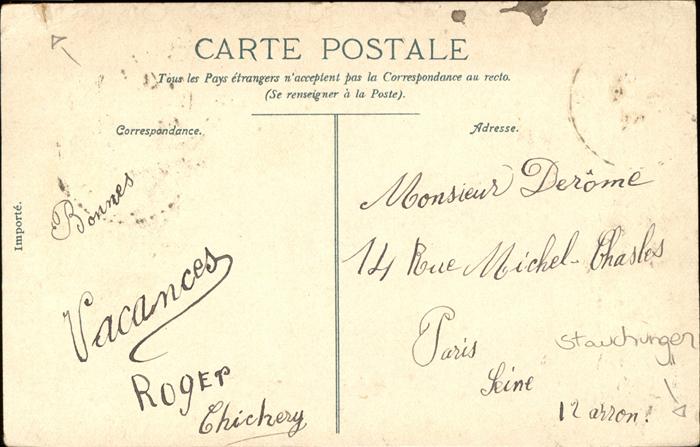 CARTE POSTALE
Tous les Pays étrangers n'acceptent pas la Correspondance au recto.
(Se renseigner à la Poste).
Correspondance.
Adresse.
Importé.
Bonnes
Vacances
Roger
Chichery
Monsieur Derôme
14 Rue Michel-Chasles
Paris
Seine
12 arron.
Stauchungen